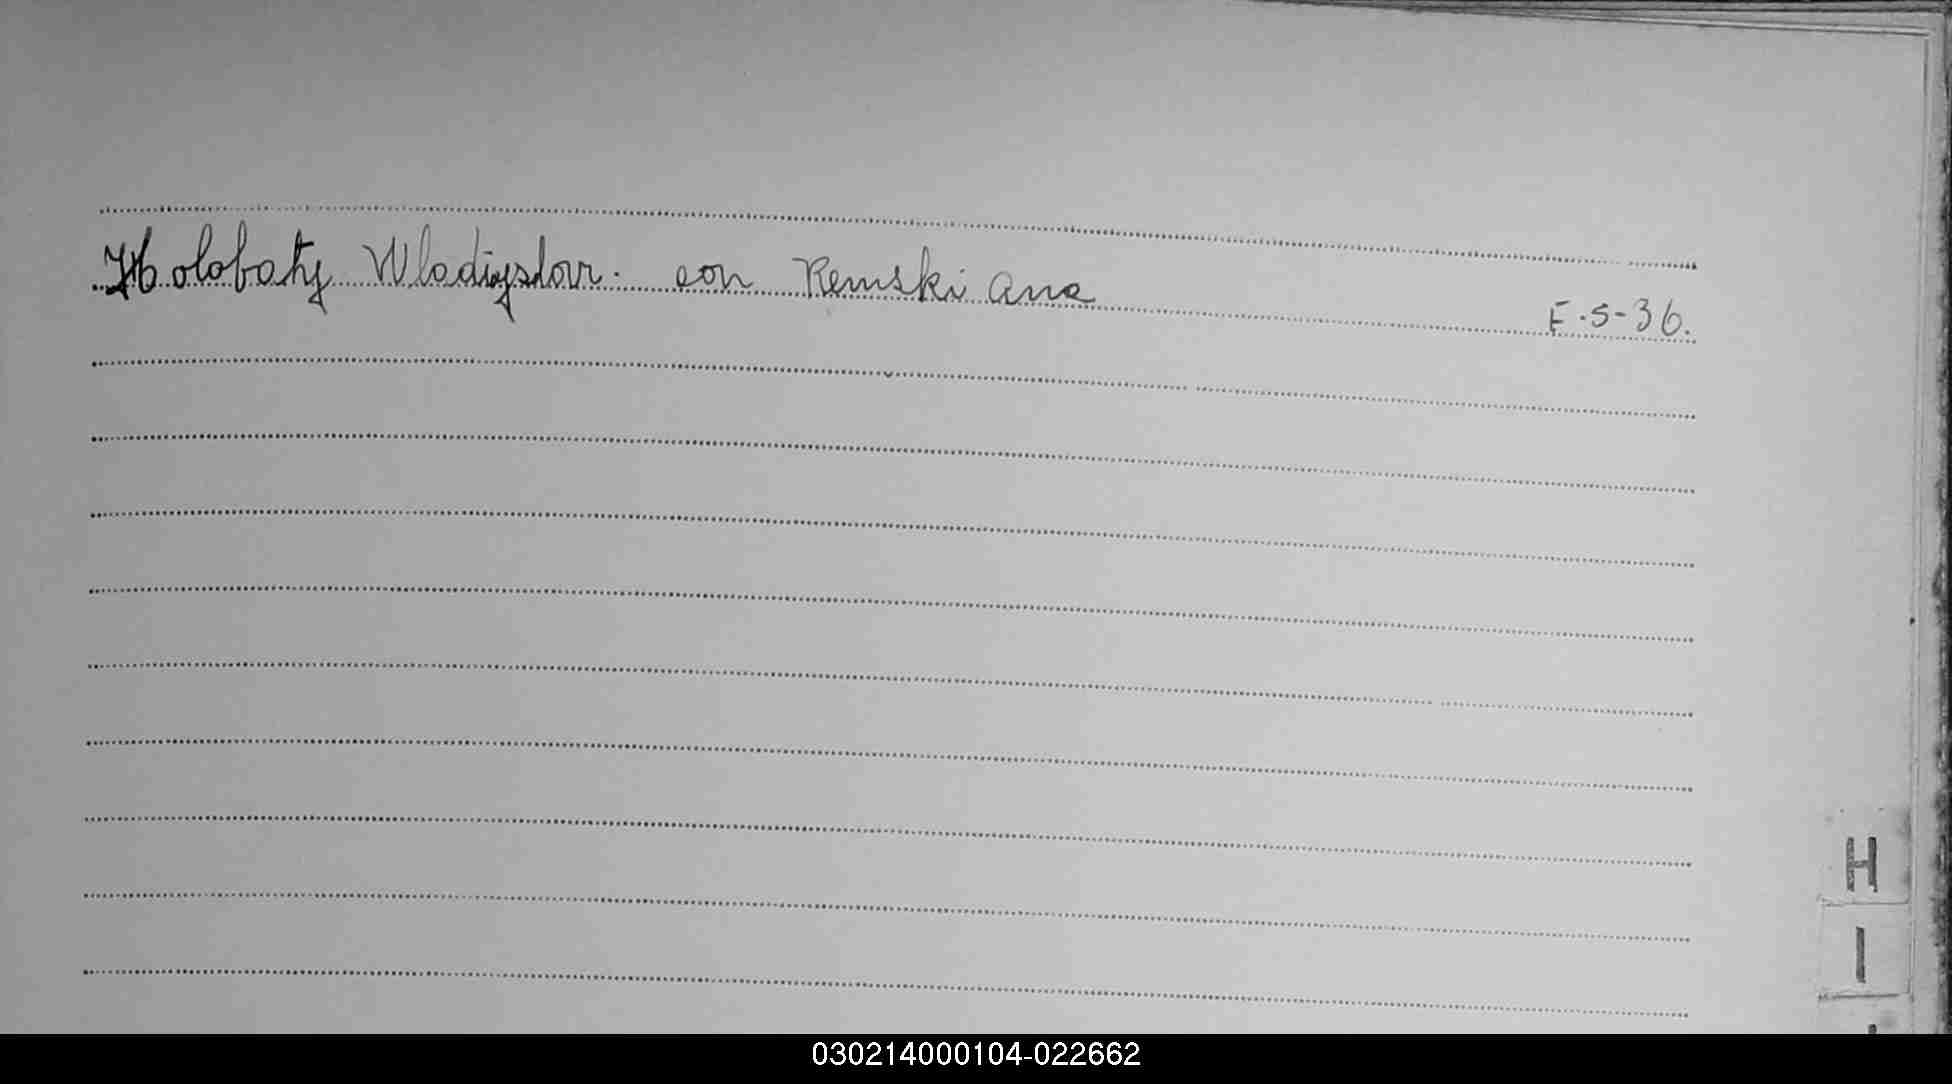 Holobaty Wladiyslovr. con Remski Ana F.S-36.
H
I
030214000104-022662